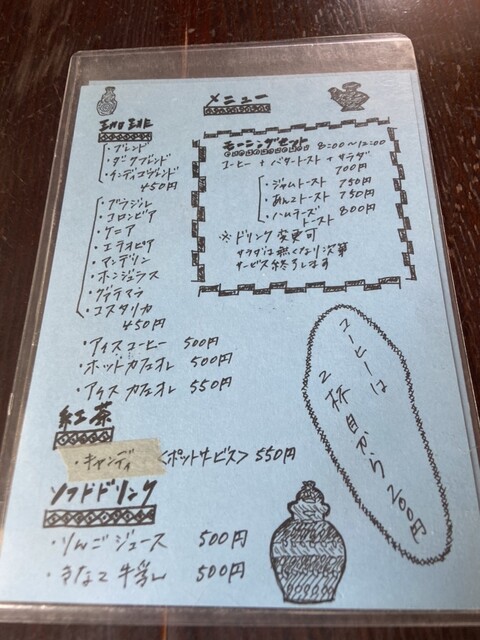 メニュー
珈琲
・ブレンド
・ダークブレンド
・キャンディコブレンド
450円
・ブラジル
・コロンビア
・ケニア
・エチオピア
・マンデリン
・ホンジュラス
・グァテマラ
・コスタリカ
450円
・アイスコーヒー 500円
・ホットカフェオレ 500円
・アイスカフェオレ 550円
紅茶
・キャンディ <ポットサービス> 550円
ソフトドリンク
・りんごジュース 500円
・きなこ牛乳 500円
モーニングセット 8:00〜12:00
コーヒー+バタートースト+サラダ
700円
・ジャムトースト 750円
・あんこトースト 750円
・ハムチーズ 800円
トースト
※ドリンク変更可
サラダは無くなり次第
サービス終了します
コーヒーは
2杯目から200円